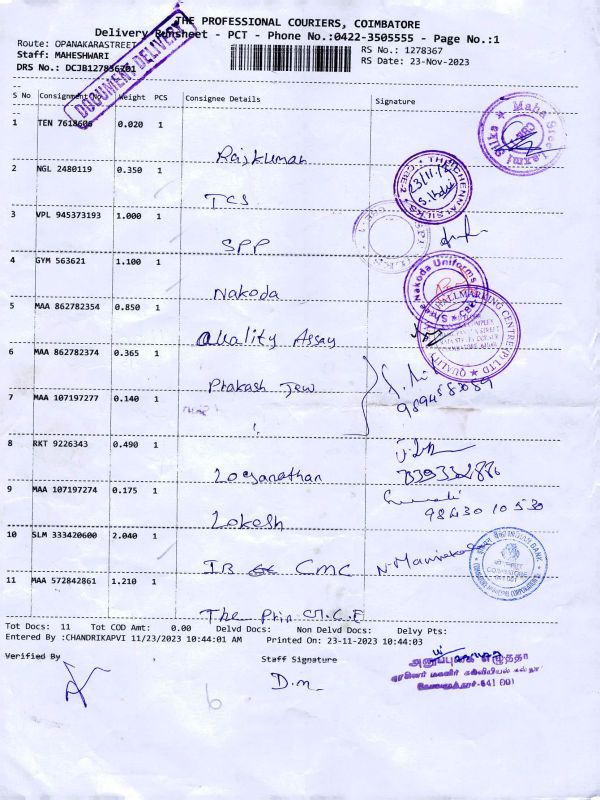 THE PROFESSIONAL COURIERS, COIMBATORE
Delivery Runsheet - PCT - Phone No.:0422-3505555 - Page No.:1
Route: OPANAKARASTREET
RS No.: 1278367
Staff: MAHESHWARI
RS Date: 23-Nov-2023
DRS No.: DCJB127836701
DOCUMENT DELIVERY
S No Consignment No Weight PCS Consignee Details Signature
1 TEN 7618606 0.020 1 Rajkuman
2 NGL 2480119 0.350 1 TCS
23/11/
3 VPL 945373193 1.000 1 SPP
4 GYM 563621 1.100 1 Nakoda
Shree Nakoda Uniforms
5 MAA 862782354 0.850 1 Quality Assay
QUALITY HALLMARKING CENTRE (P) LTD
6 MAA 862782374 0.365 1 Prakash Jew
7 MAA 107197277 0.140 1
8 RKT 9226343 0.490 1 Loganathan
9 MAA 107197274 0.175 1 Lokesh
98430 10530
10 SLM 333420600 2.040 1 IB CMC
INDIAN BANK
11 MAA 572842861 1.210 1 The Prin
Tot Docs: 11 Tot COD Amt: 0.00 Delvd Docs: Non Delvd Docs: Delvy Pts:
Entered By :CHANDRIKAPVI 11/23/2023 10:44:01 AM Printed On: 23-11-2023 10:44:03
Verified By
Staff Signature
D.m.